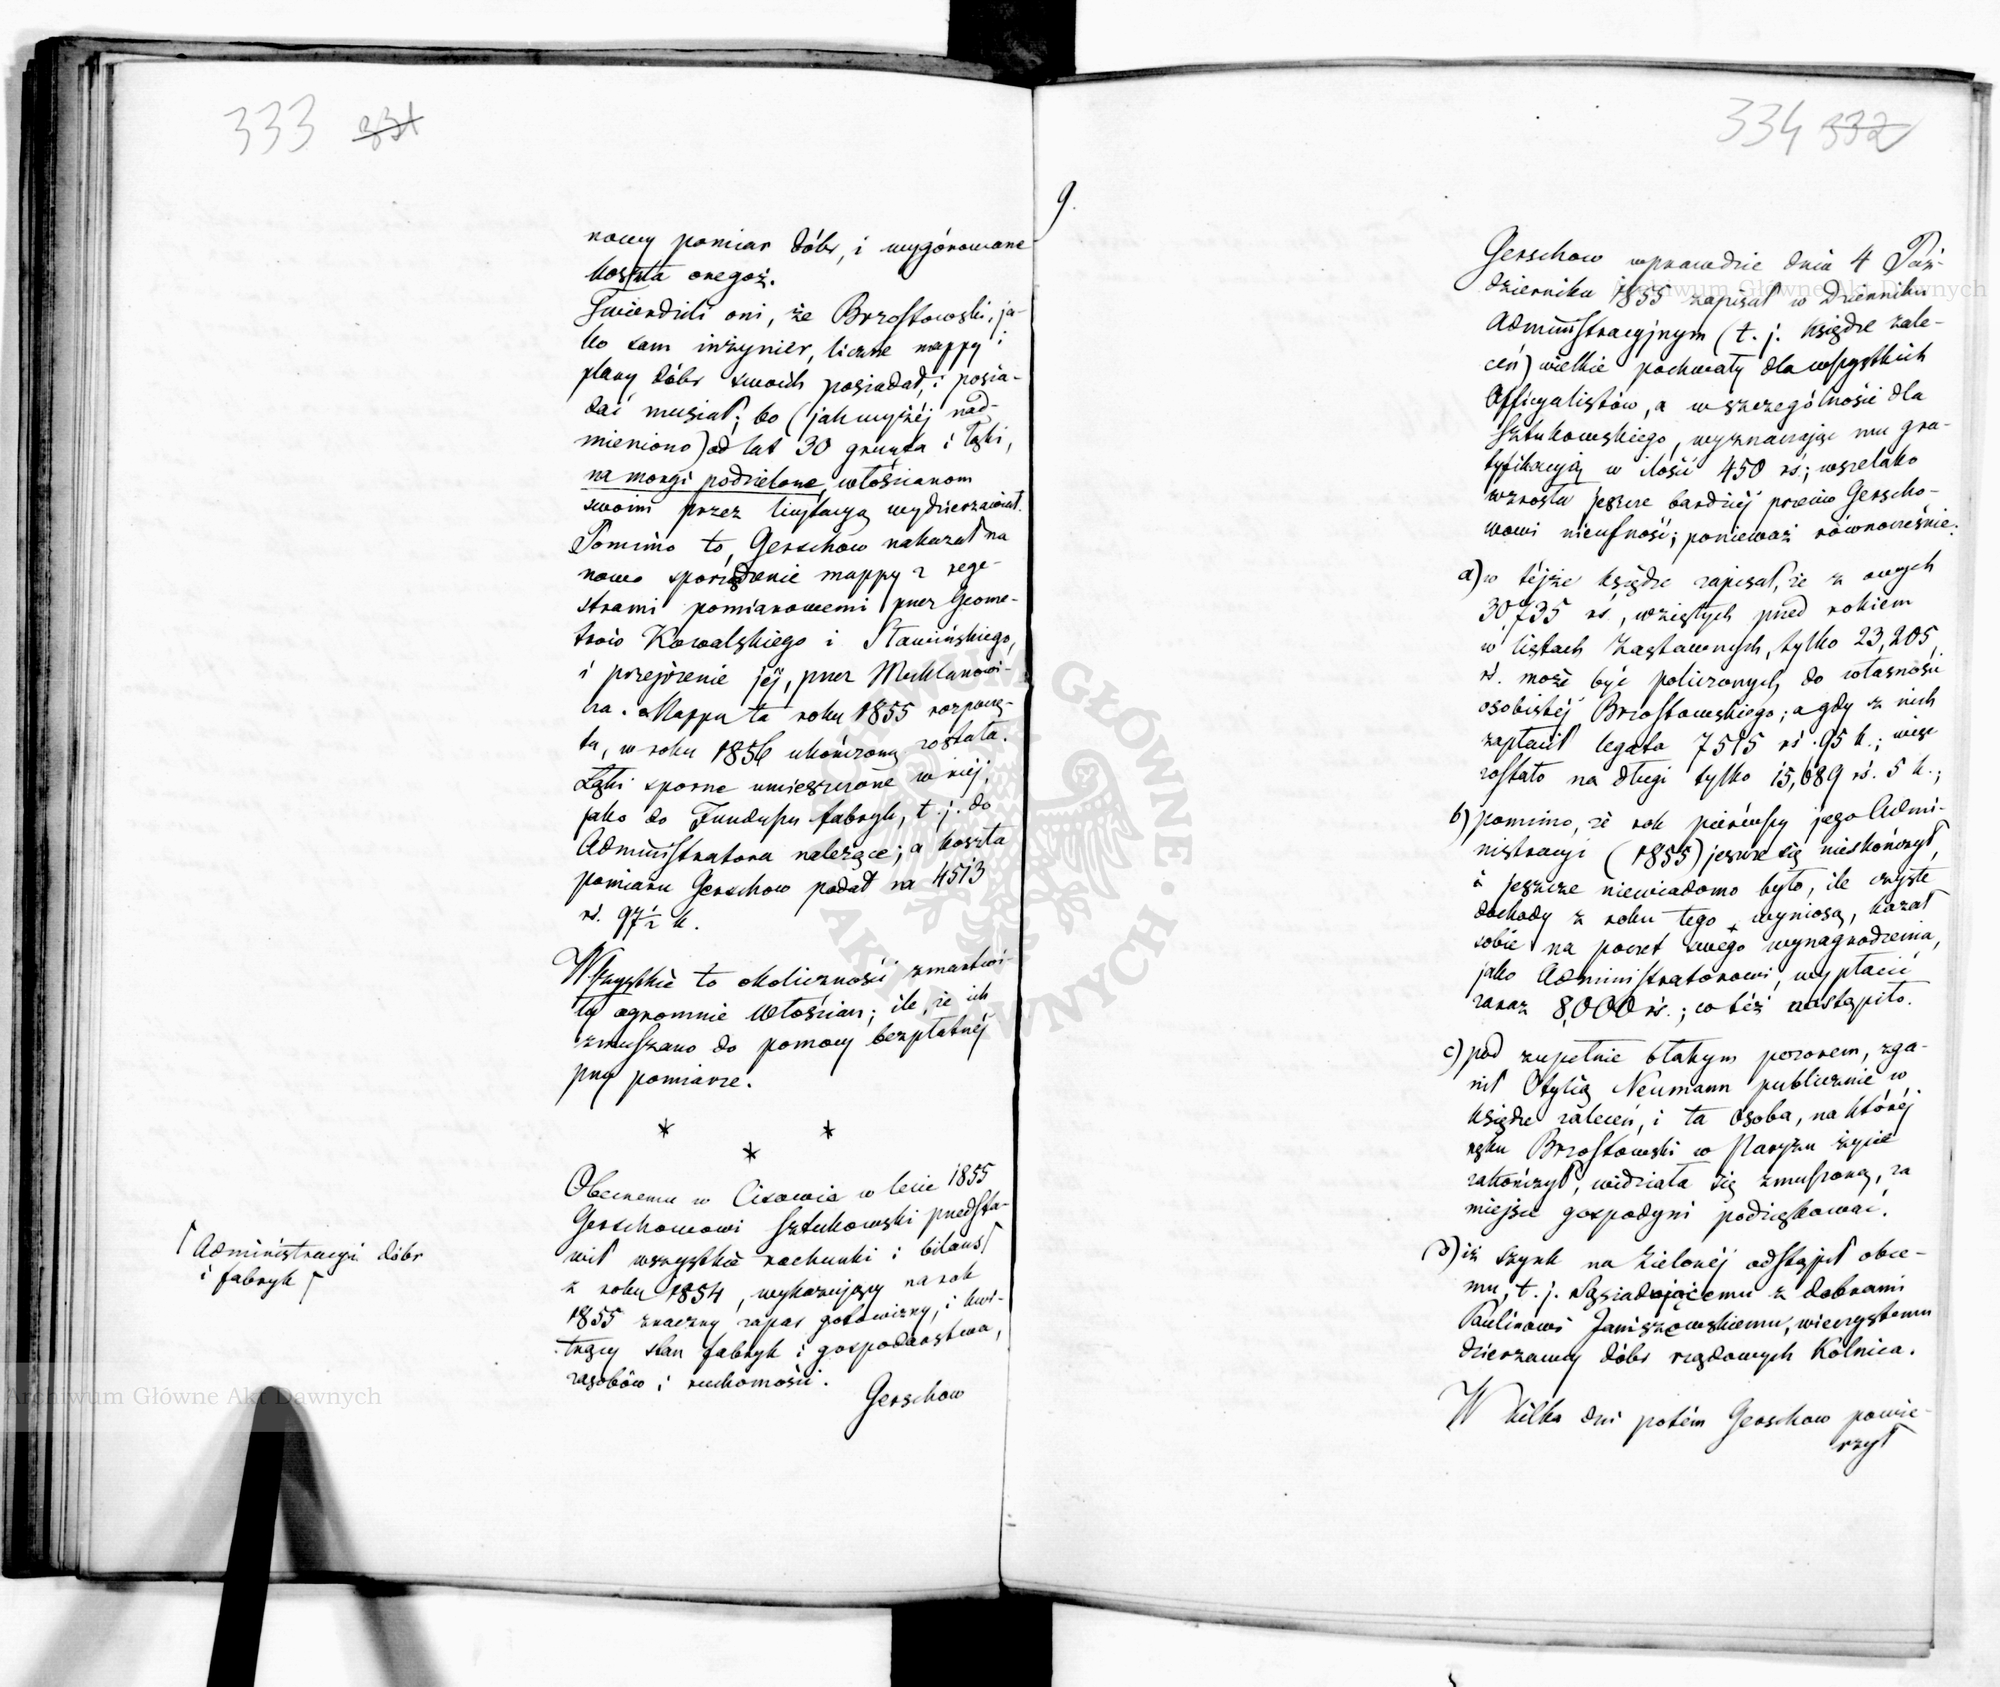 333 331
nowy pomiar dóbr, i wygórowane
koszta onegoż.
Twierdzili oni, że Brzostowski, ja-
ko sam inżynier, liczne mappy i
plany dóbr swoich posiadał, i posia-
dać musiał; bo (jak wyżéj nad-
mieniono) od lat 30 grunta i łąki,
na morgi podzielone, włościanom
swoim przez licytacyą wydzierzawiał.
Pomimo to, Gerschow nakazał na
nowo sporządzenie mappy z rege-
strami pomiarowemi przez Geome-
trów Kowalskiego i Sławińskiego,
i przejrzenie jéj, przez Meklanowi-
cza. Mappa ta roku 1855 rozpoczę-
ta, w roku 1856 ukończoną została.
Łąki sporne umieszczone w niéj,
jako do Funduszu fabryk, t. j. do
Administratora należące; a koszta
pomiaru Gerschow podał na 4513
rś. 97½ k.
Wszystkie te okoliczności zmartwi-
ły ogromnie Włościan; ile, że ich
zmuszano do pomocy bezpłatnéj
przy pomiarze.
* * *
Obecnemu w Cisowie w lecie 1855
Gerschowowi Sztukowski przedsta-
wił wszystkie rachunki i bilans
z roku 1854, wykazujący na rok
1855 znaczny zapas gotowizny, i kwi-
tnący stan fabryk i gospodarstwa,
zasobów i ruchomości.
Gerschow
Administracyi dóbr
i fabryk
9.
334 332
Gerschow wprawdzie dnia 4 Paź-
dziernika 1855 zapisał w Dzienniku
Administracyjnym (t. j. księdze zale-
ceń) wielkie pochwały dla wszystkich
Officyalistów, a w szczególności dla
Sztukowskiego, wyznaczając mu gra-
tyfikacyią w ilości 450 rś; wszelako
wzrosła jeszcze bardziéj przeciw Gerscho-
wowi nieufność; ponieważ równocześnie:
a) w téjże księdze zapisał, że z owych
30,735 rś., wziętych przed rokiem
w listach Zastawnych, tylko 23,205
rś. może być policzonych do własności
osobistéj Brzostowskiego; a gdy z nich
zapłacił legata 7515 rś. 95 k.; więc
zostało na długi tylko 15,689 rś. 5 k.;
b) pomimo, że rok pierwszy jego Admi-
nistracyi (1855) jeszcze się nieskończył,
i jeszcze niewiadomo było, ile czyste
dochody z roku tego wyniosą, kazał
sobie na poczet swego wynagrodzenia,
jako Administratorowi, wypłacić
zaraz 8,000 rś.; co téż nastąpiło.
c) pod zupełnie błahym pozorem, zga-
nił Otylią Neumann publicznie w
księdze zaleceń, i ta Osoba, na któréj
ręku Brzostowski w Paryżu życie
zakończył, widziała się zmuszoną, za
miejsce gospodyni podziękować.
d) iż szynk na Zielonéj odstąpił obce-
mu, t. j. sąsiadującemu z dobrami
Paulinowi Janiszowskiemu, wieczystemu
dzierzawcy dóbr rządowych Kolnica.
W kilka dni potém Gerschow powie-
rzył
Archiwum Główne Akt Dawnych
Archiwum Główne Akt Dawnych
ARCHIWUM GŁÓWNE AKT DAWNYCH